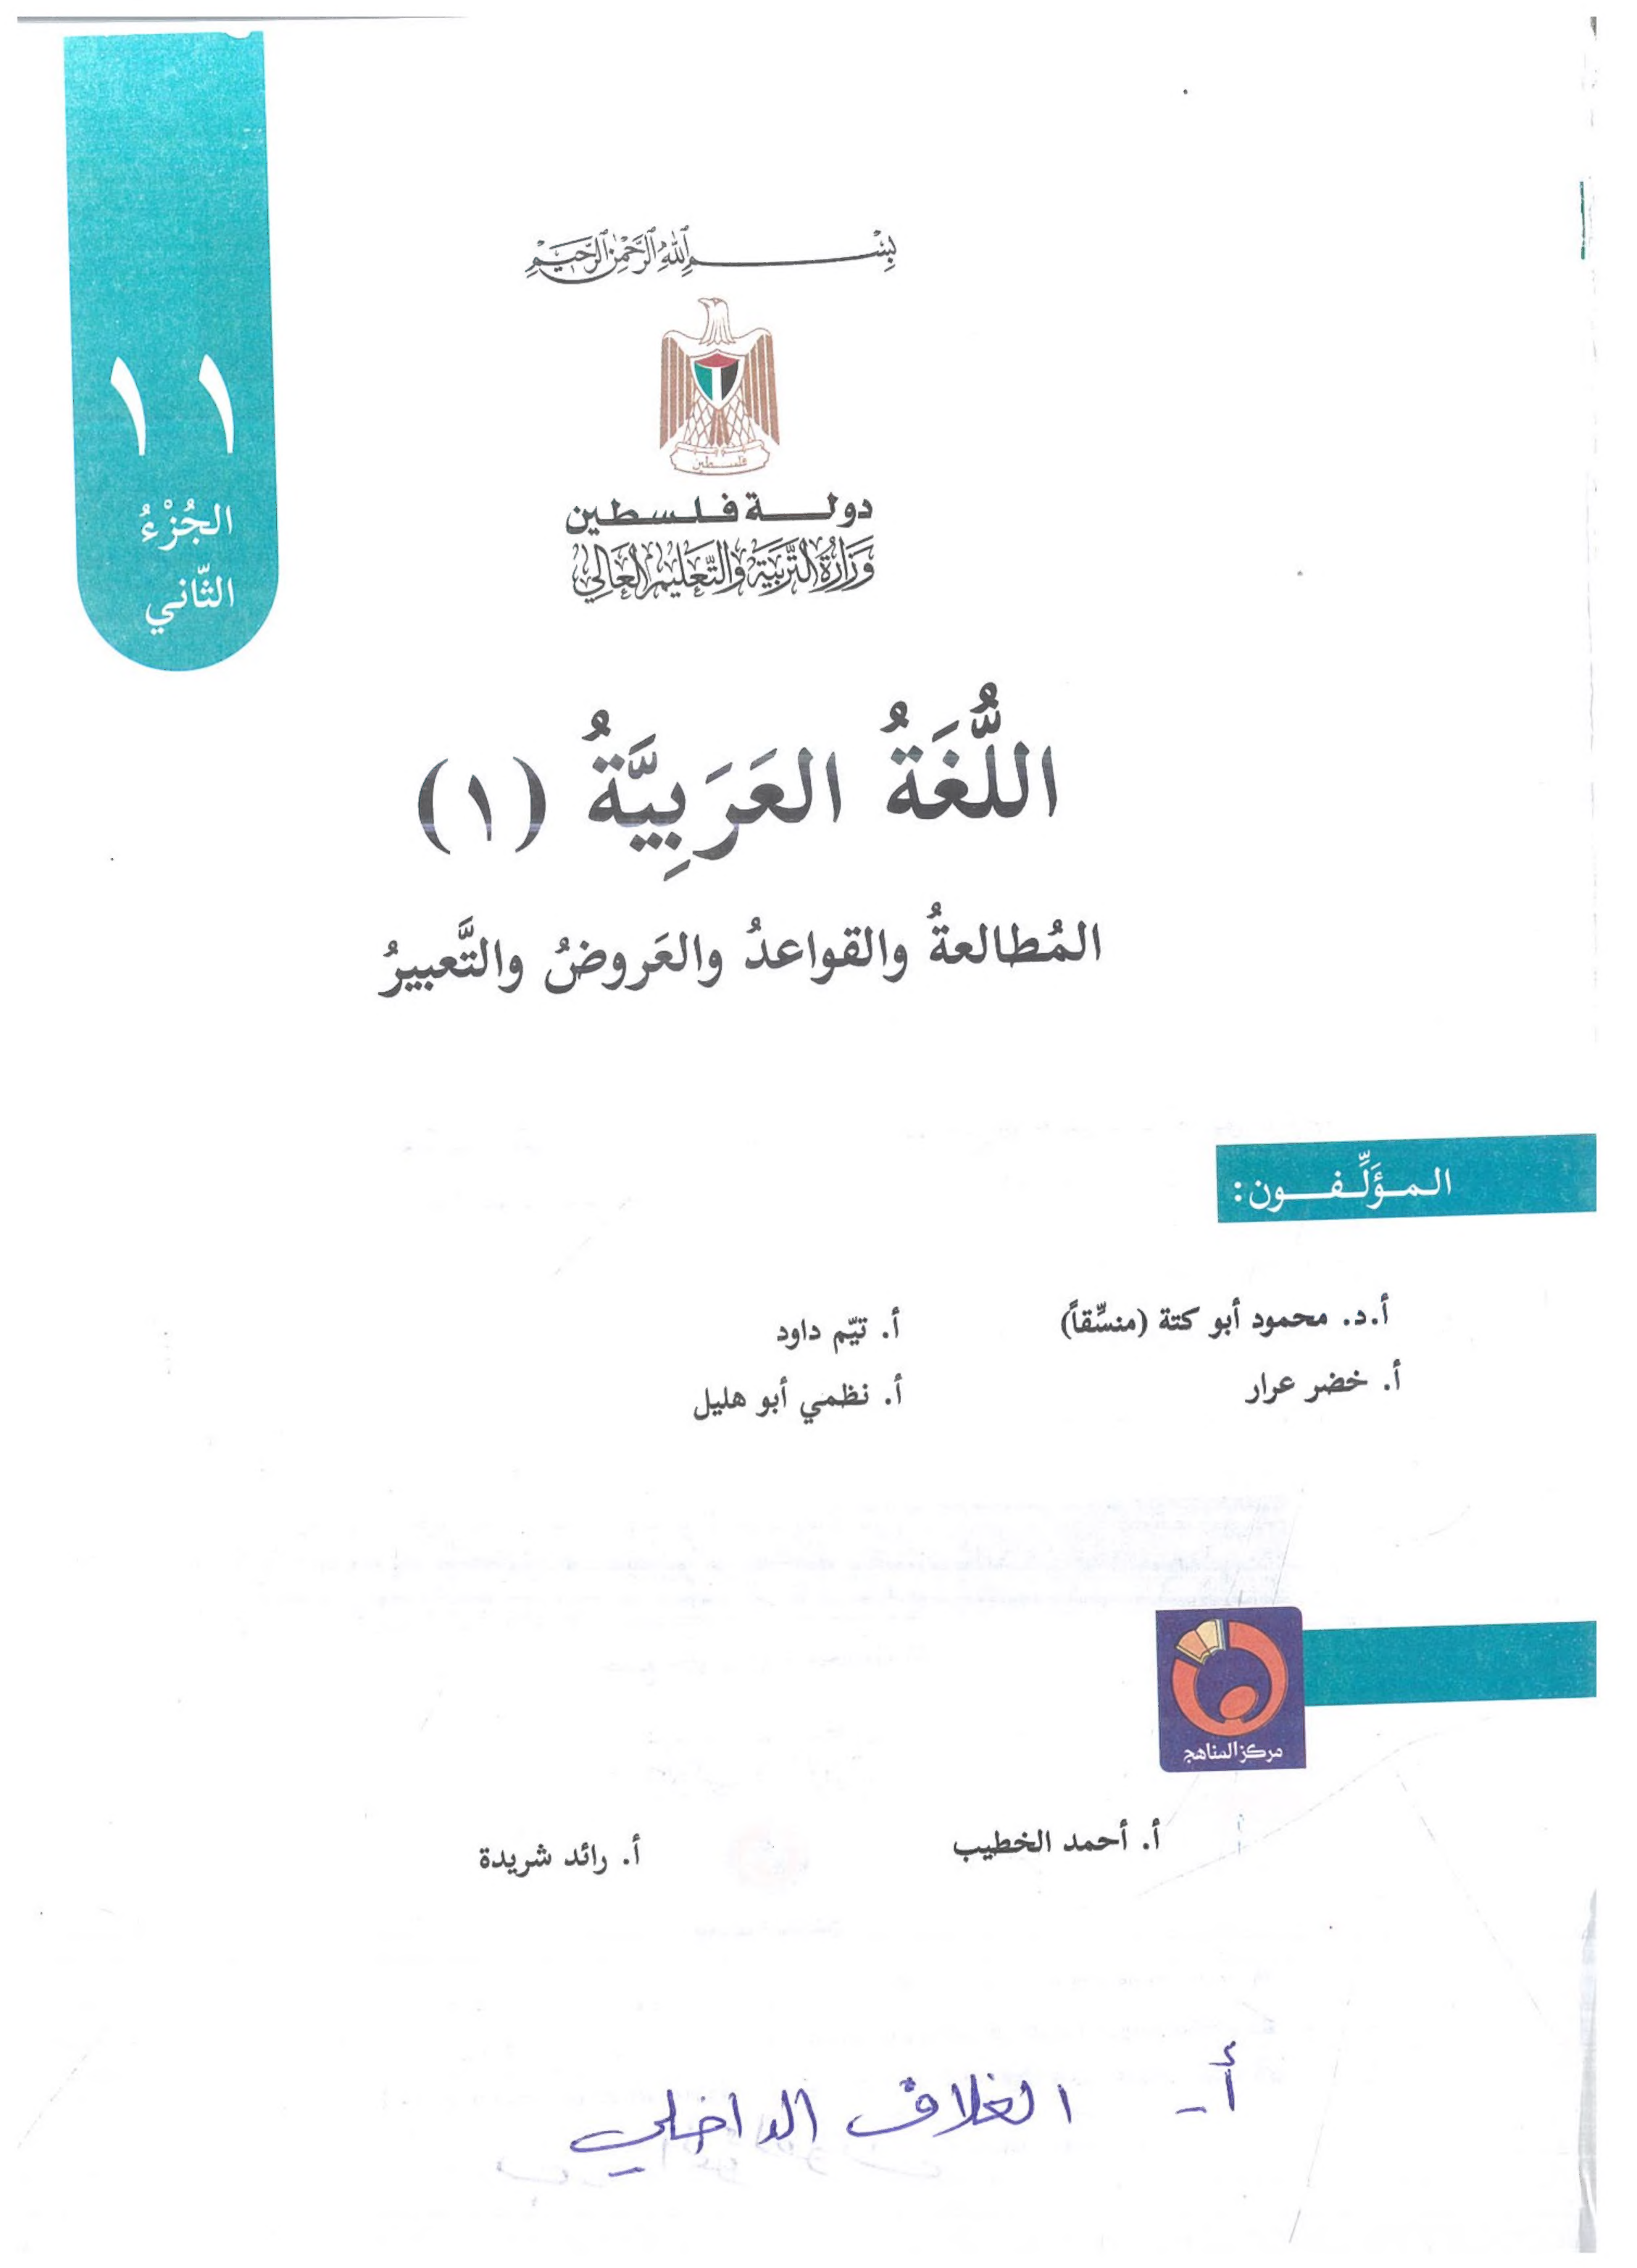 بسم الله الرحمن الرحيم
فلسطين
دولة فلسطين
وزارة التربية والتعليم العالي
١١
الجُزْءُ
الثّاني
اللُّغَةُ العَرَبِيَّةُ (١)
المُطالعةُ والقواعدُ والعَروضُ والتَّعبيرُ
المؤلِّفون:
أ.د. محمود أبو كتة (منسِّقاً)
أ. تيّم داود
أ. خضر عرار
أ. نظمي أبو هليل
مركز المناهج
أ. أحمد الخطيب
أ. رائد شريدة
أ- الغلاف الداخلي